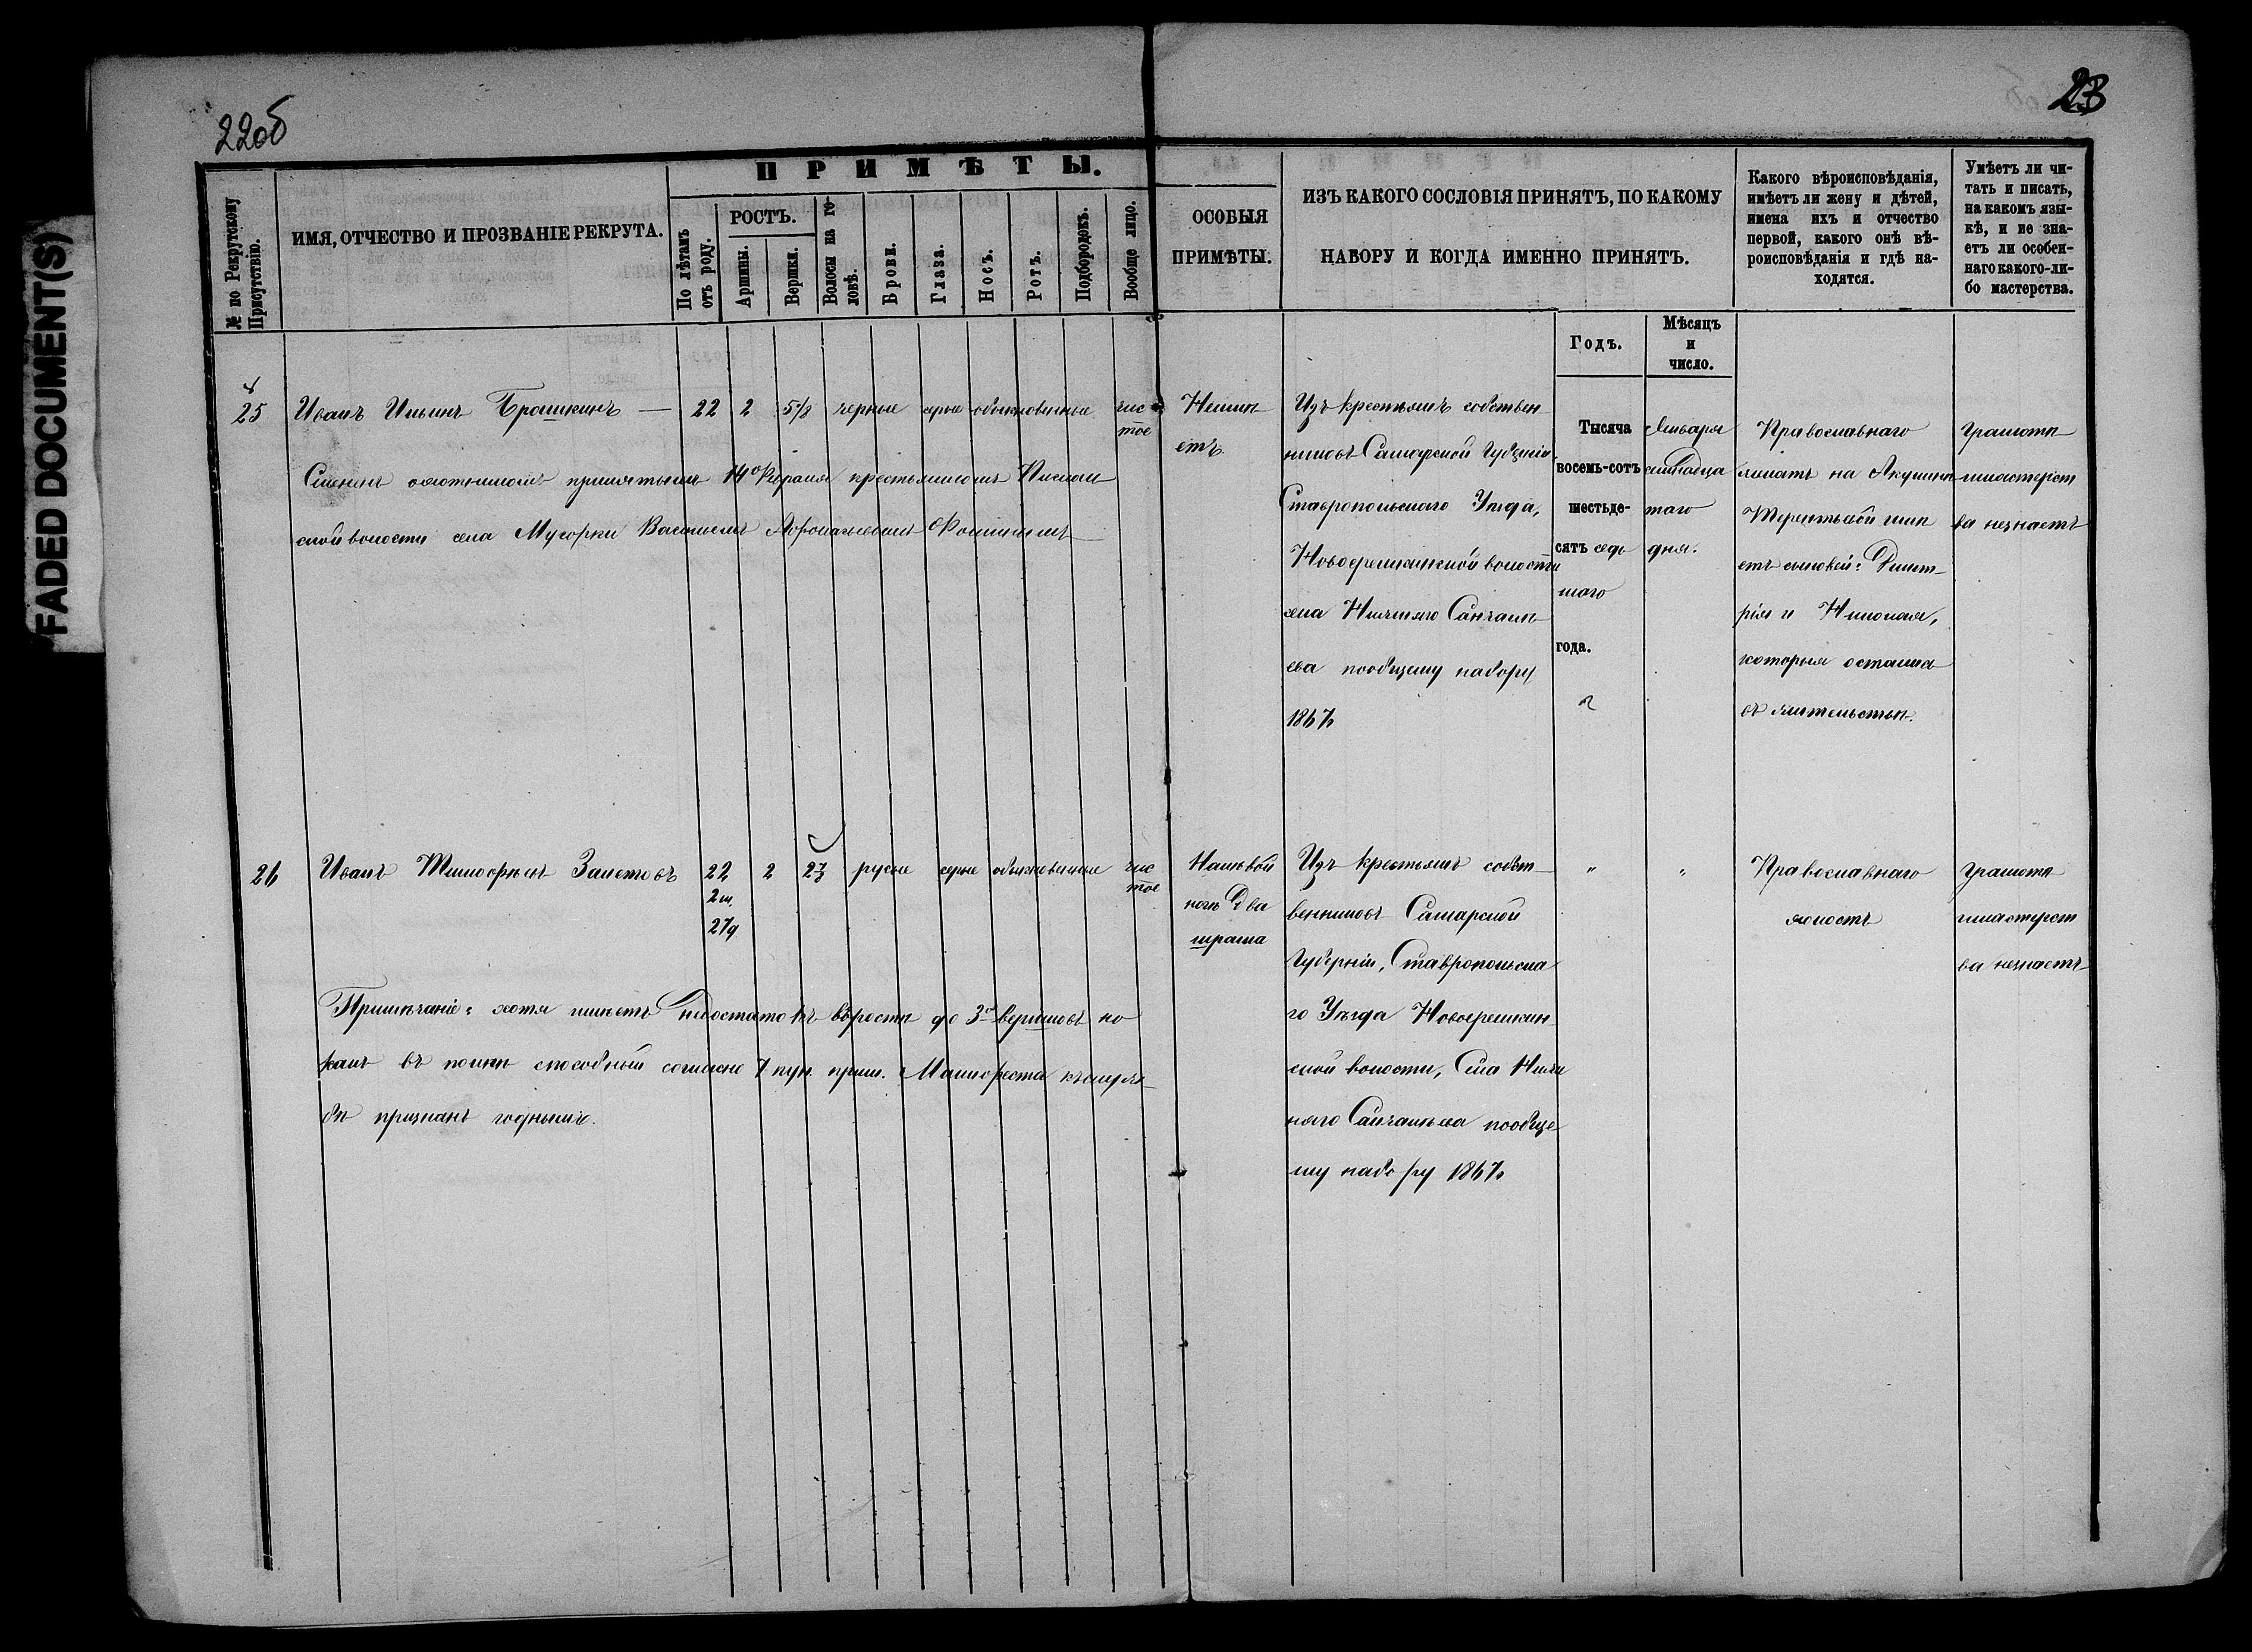 FADED DOCUMENT(S)
22об
23
ПРИМѢТЫ.
№ по Рекрутскому
Присутствію.
ИМЯ, ОТЧЕСТВО И ПРОЗВАНІЕ РЕКРУТА.
По лѣтамъ
отъ роду.
РОСТЪ.
Аршины.
Вершки.
Волосы на го-
ловѣ.
Брови.
Глаза.
Носъ.
Ротъ.
Подбородокъ.
Вообще лицо.
ОСОБЫЯ
ПРИМѢТЫ.
ИЗЪ КАКОГО СОСЛОВІЯ ПРИНЯТЪ, ПО КАКОМУ
НАБОРУ И КОГДА ИМЕННО ПРИНЯТЪ.
Годъ.
Мѣсяцъ
и
число.
Какого вѣроисповѣданія,
имѣетъ ли жену и дѣтей,
имена ихъ и отчество
первой, какого онѣ вѣ-
роисповѣданія и гдѣ на-
ходятся.
Умѣетъ ли чи-
тать и писать,
на какомъ язы-
кѣ, и не зна-
етъ ли особен-
наго какого-ли-
бо мастерства.
25
Иванъ Ильинъ Брошкинъ —
22 2 5 1/2 черные серые обыкновенные чис
тое
Смененъ охотникомъ принятымъ 14го Февраля крестьяниномъ
ской волости села Мусорки Васильемъ Фоминымъ
Неим
етъ.
Изъ крестьянъ собствен
никовъ Самарской Губерніи
Ставропольского Уезда,
Новоеремкинской волости
села Нижняго Санчале
ева пообщему набору
1867 г.
Тысяча
восемь-сотъ
шестьде-
сятъ седь
мого
года.
Января
семнадца
таго
дня.
Православнаго
женатъ на Акулине
Терентьевой име
етъ сыновей: Дмит
рія и Николая,
которыя остались
въ жительстве.
Грамоте
имастерст
ва незнаетъ
26
Иванъ Тимофеевъ Заметовъ
22
2 м.
27 д
2 2 русые серые обыкновенные чис
тое
Налевой
ноге Два
шрама
Изъ крестьянъ собст
венниковъ Самарской
Губерніи, Ставропольска
го Уезда Новоеремкин
ской волости, Села Ниж
няго Санчалеева пообще
му набору 1867 г.
„
„
Православнаго
холостъ
Грамоте
имастерст
ва незнаетъ
Примѣчаніе: хотя имеетъ недостатокъ въ росте до 3х вершковъ но
какъ въ полне способный согласно 7 пун. прим. Манифеста кслуж
бе признанъ годнымъ.